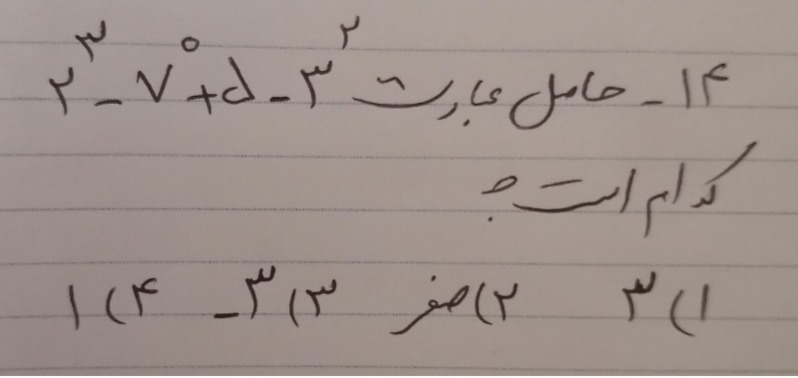 ۱۴ - حاصل عبارت ۲³ - ۷⁰ + ۵ - ۳²
کدام است؟
۱) ۳ ۲) صفر ۳) ۳- ۴) ۱